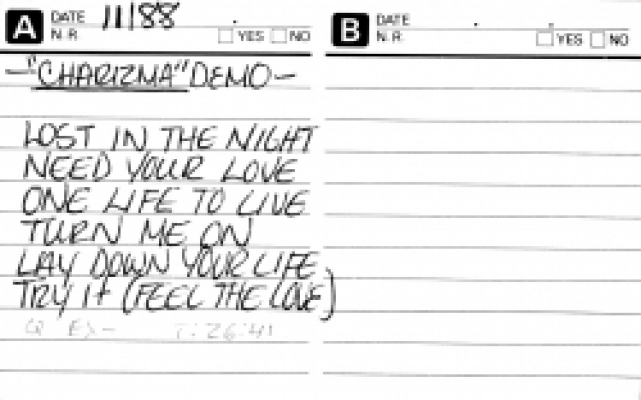 A DATE 11/88
N.R YES NO
—"CHARIZMA" DEMO—
LOST IN THE NIGHT
NEED YOUR LOVE
ONE LIFE TO LIVE
TURN ME ON
LAY DOWN YOUR LIFE
TRY IT (FEEL THE LOVE)
B DATE
N.R YES NO